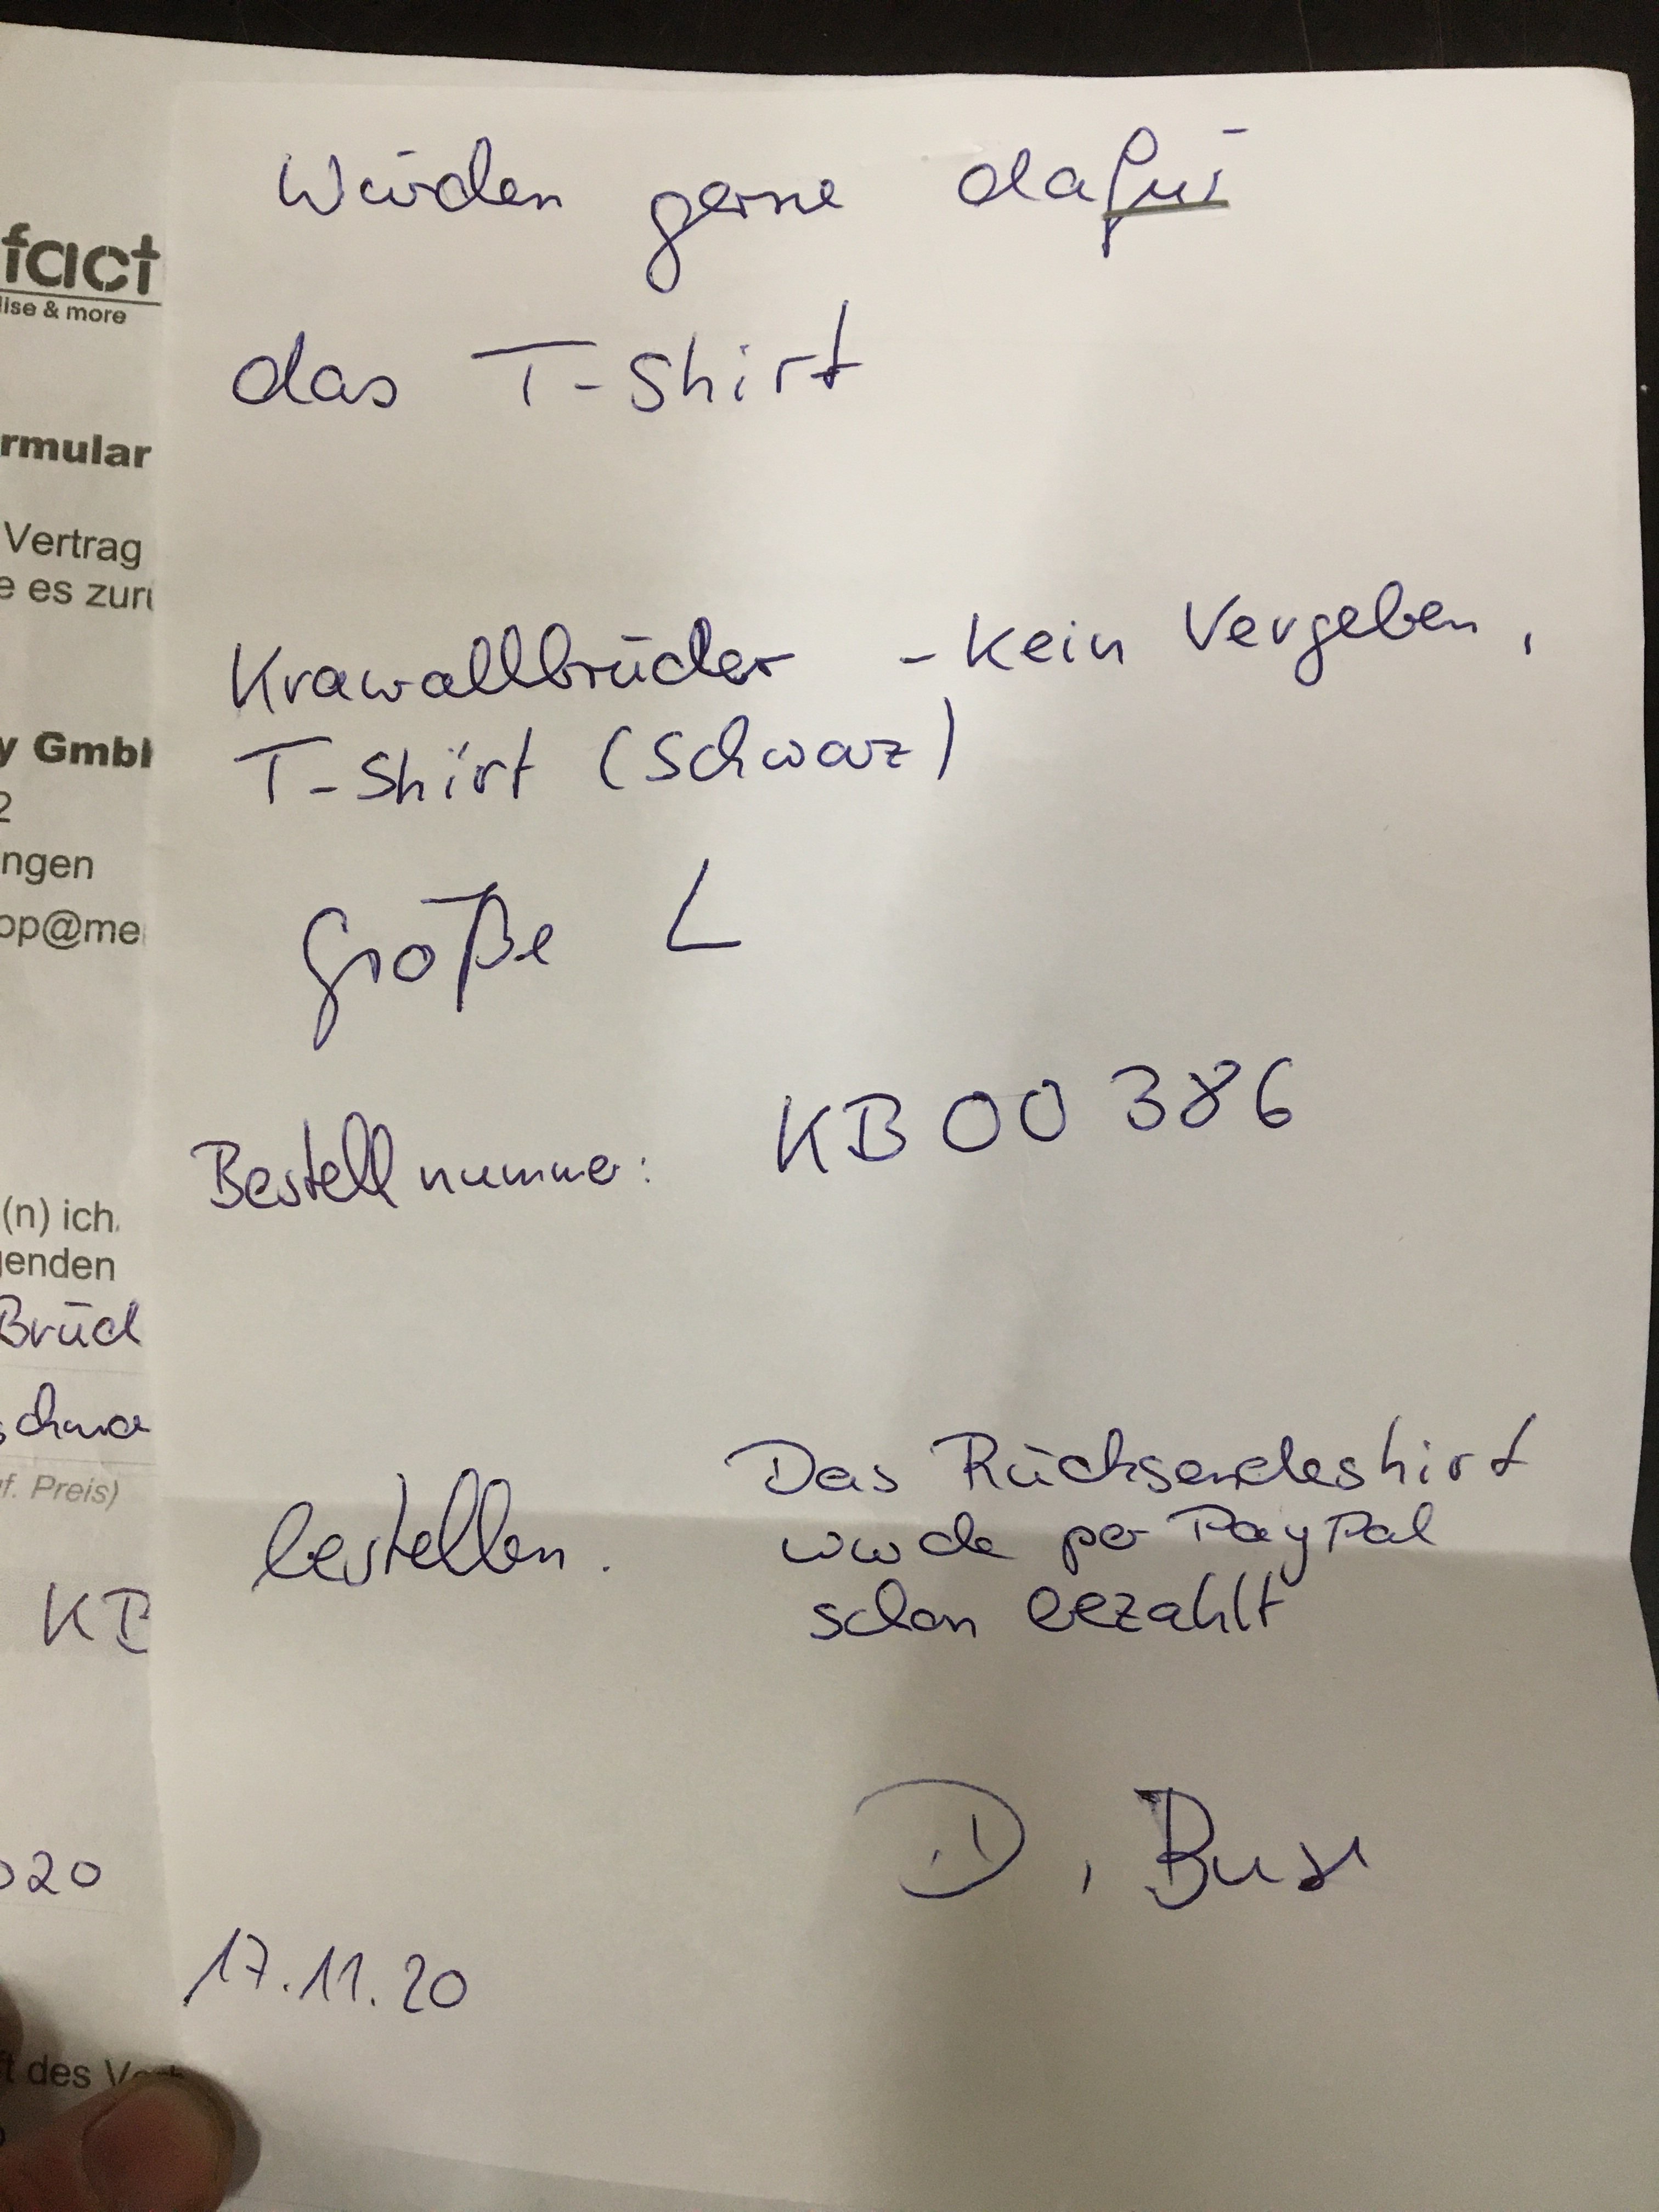 fact
lise & more
rmular
Vertrag
e es zurü
y GmbH
2
ngen
op@me
(n) ich
genden
Brüd
schwa
f. Preis)
KB
020
ft des
Würden gerne dafür
das T-Shirt
Krawallbrüder - Kein Vergeben,
T-Shirt (Schwarz)
Größe L
Bestellnummer: KB 00 386
bestellen.
Das Rücksendeshirt
wurde per PayPal
schon bezahlt
D.
17.11.20